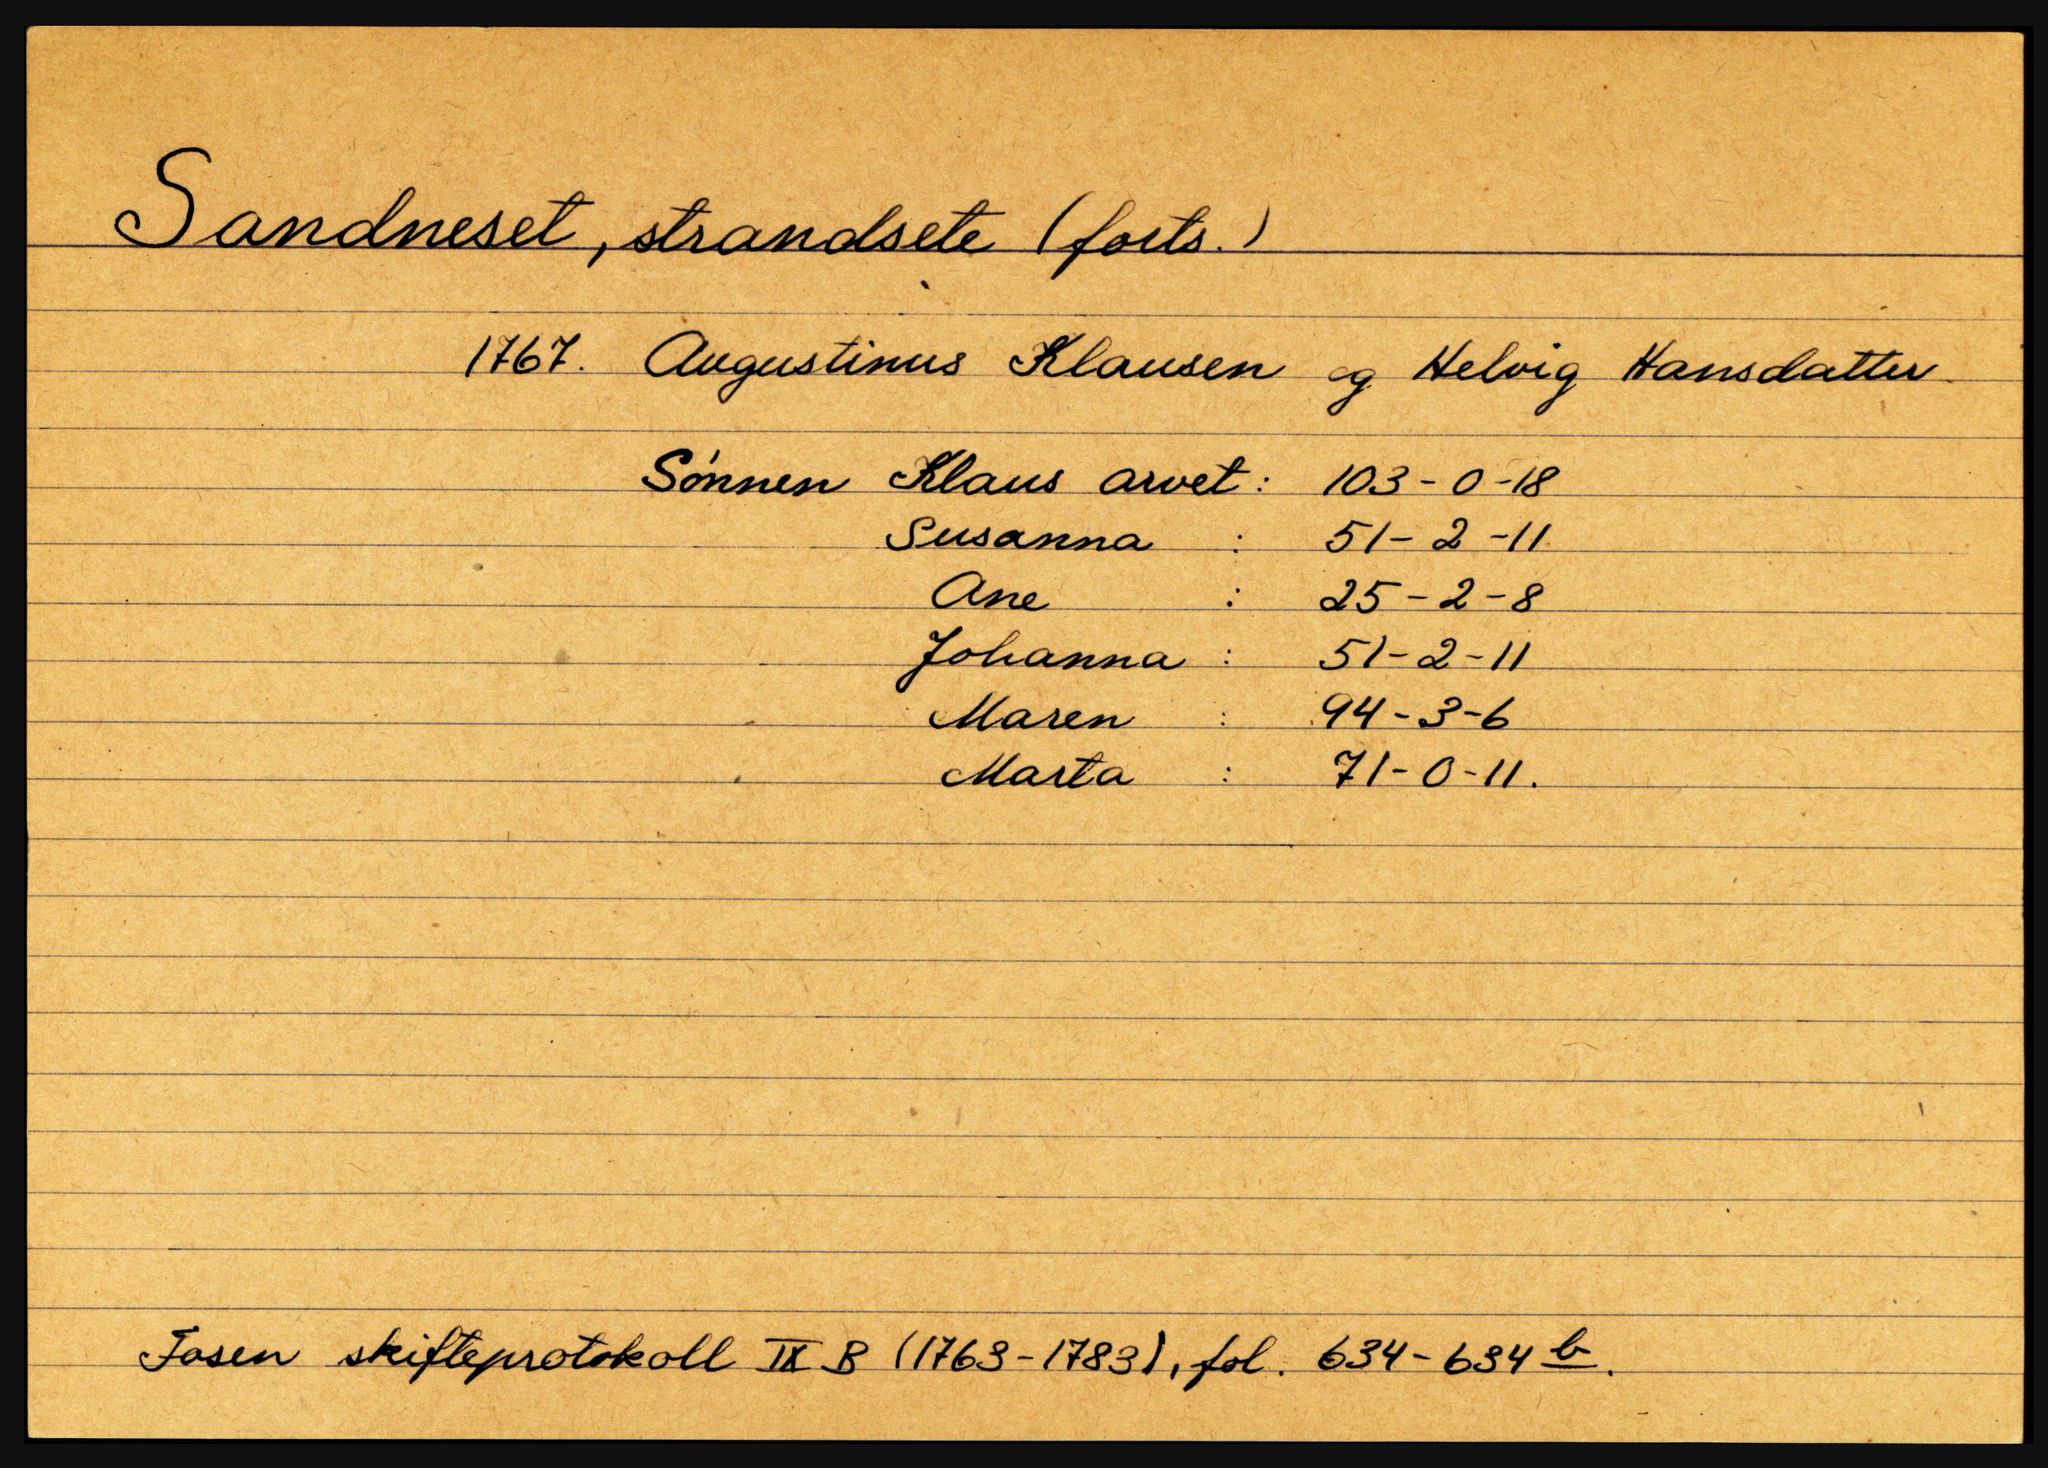 Sandneset, strandsete (forts.)
1767. Augustinus Klausen og Helvig Hansdatter
Sønnen Klaus arvet: 103-0-18
Susanna : 51-2-11
Ane : 25-2-8
Johanna : 51-2-11
Maren : 94-3-6
Marta : 71-0-11.
Fosen skifteprotokoll IX B (1763-1783), fol. 634-634 b.